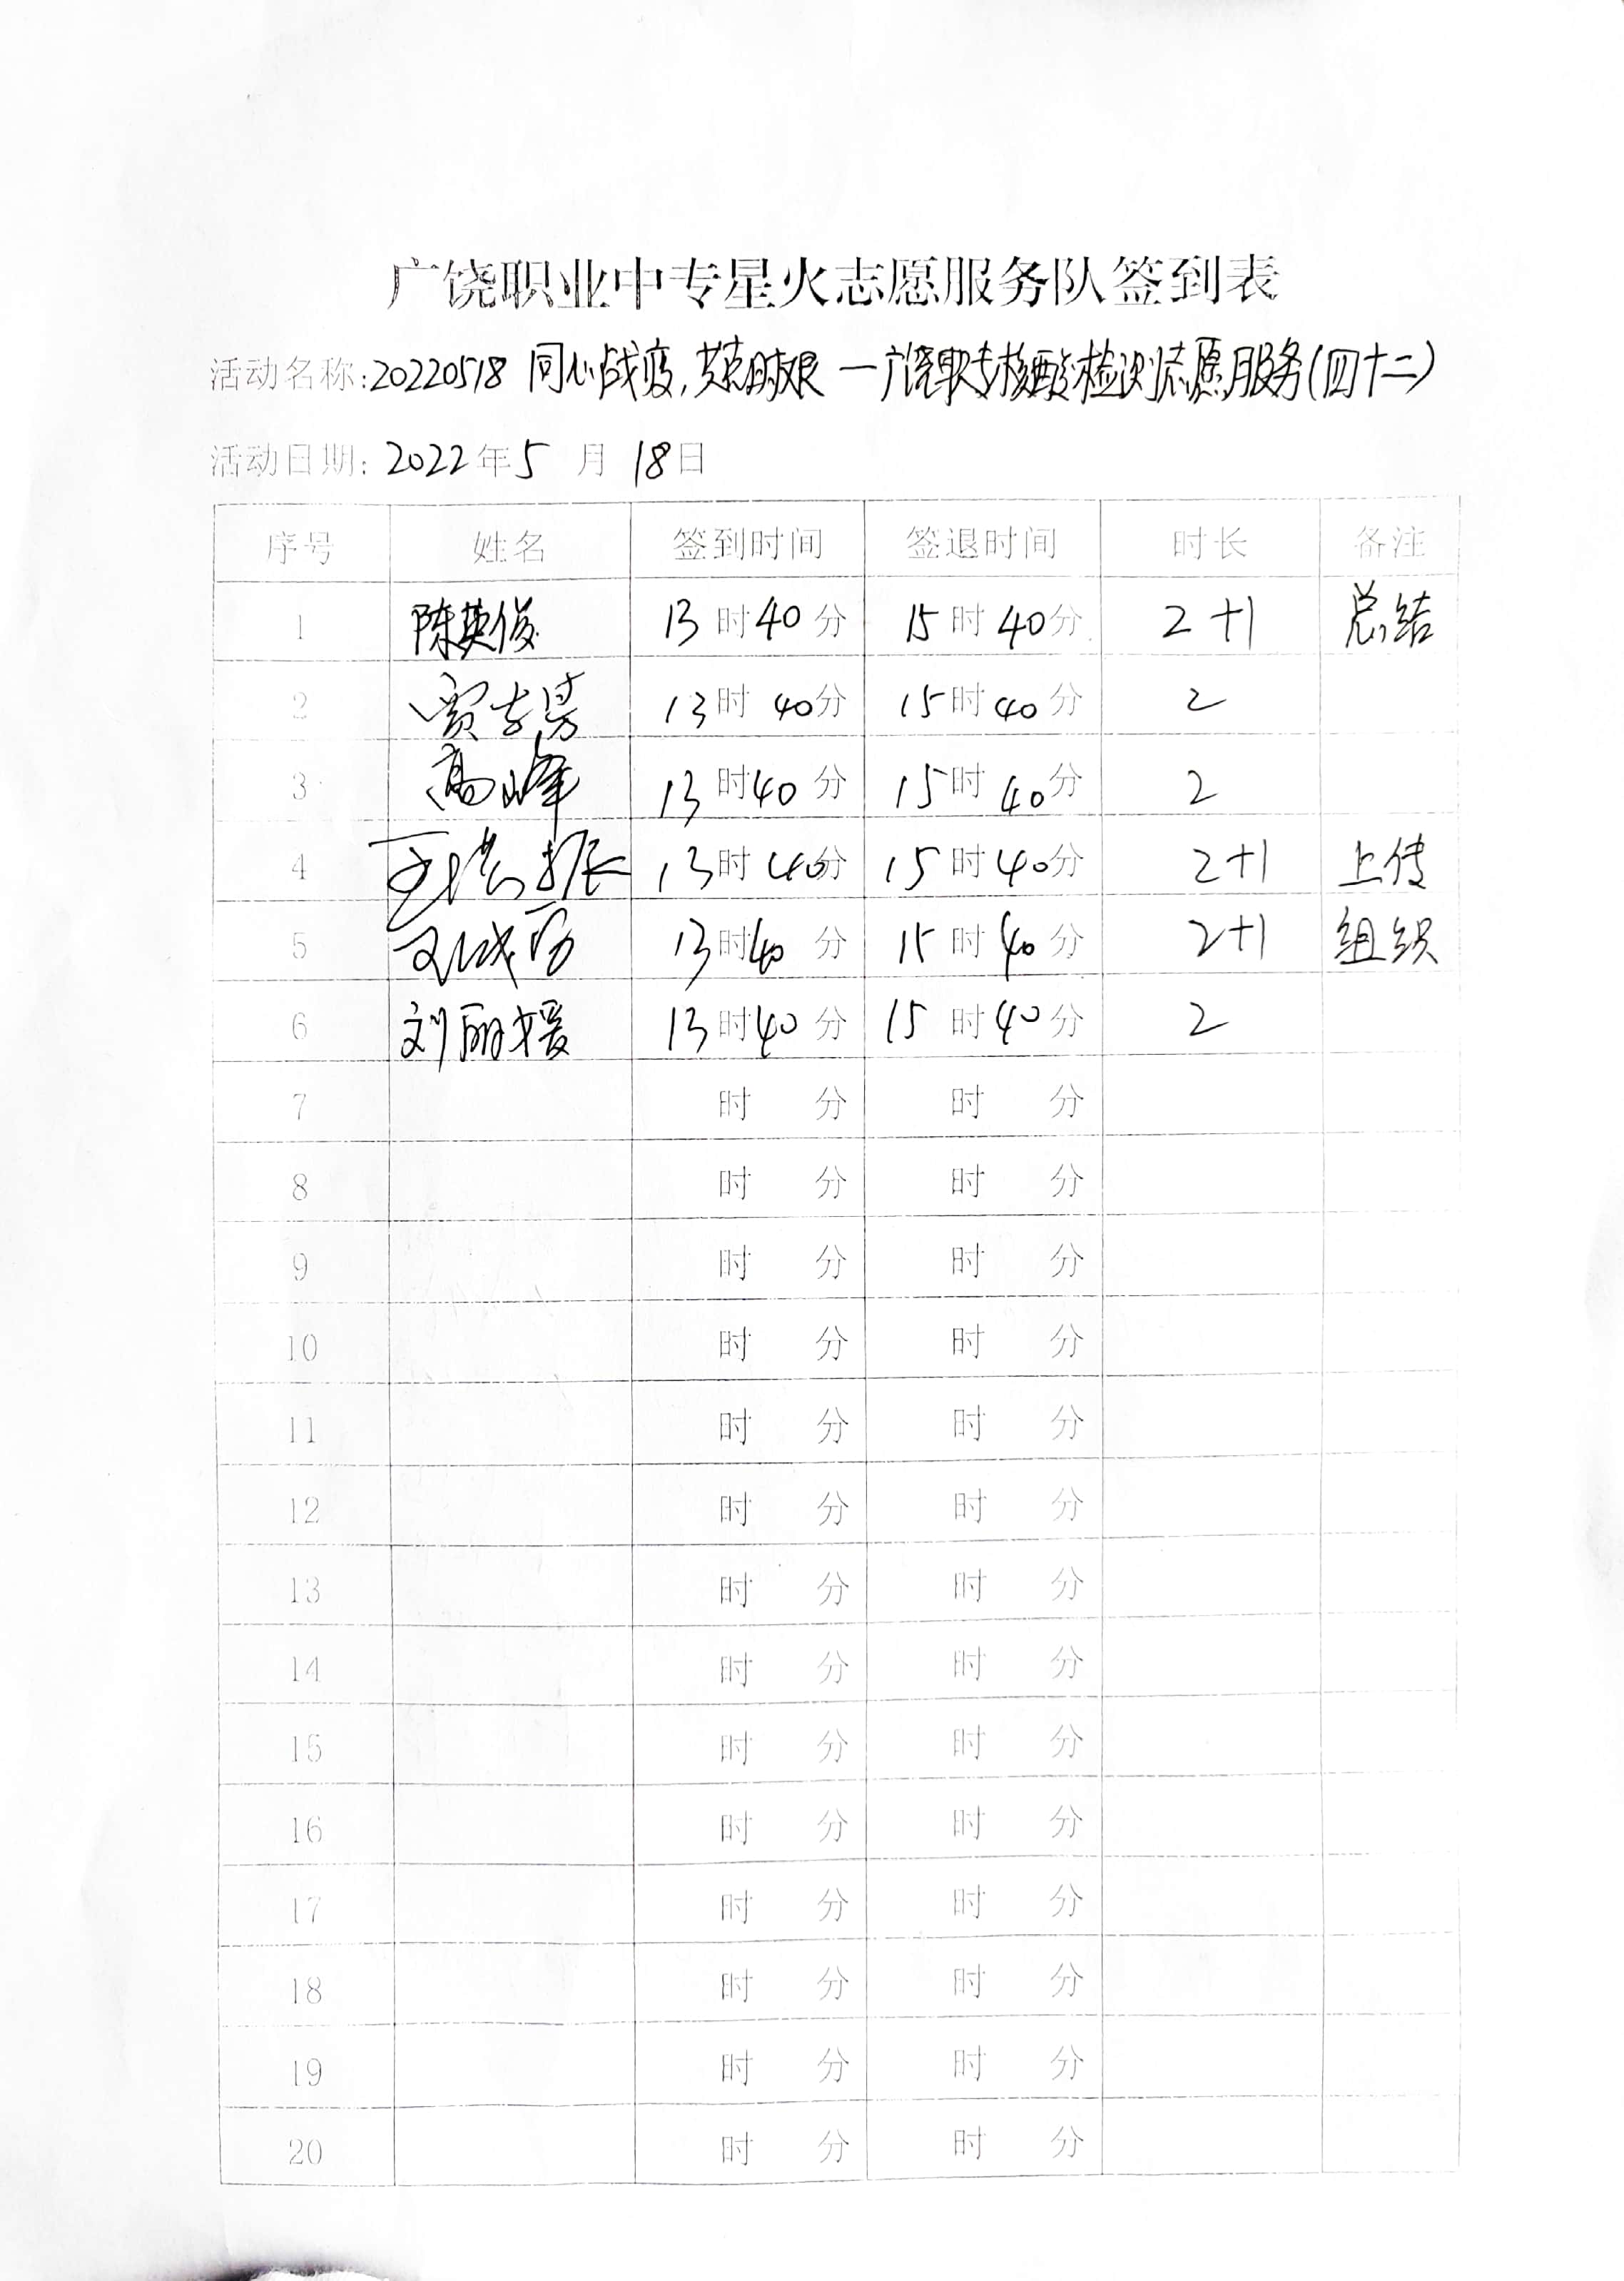 广饶职业中专星火志愿服务队签到表
活动名称:20220518 同心战疫,共克时艰—广饶职专核酸检测志愿服务(四十二)
活动日期: 2022年5月18日
序号 姓名 签到时间 签退时间 时长 备注
1 陈英俊 13时40分 15时40分 2+1 总结
2 贾 13时40分 15时40分 2
3 高峰 13时40分 15时40分 2
4 13时40分 15时40分 2+1 上传
5 13时40分 15时40分 2+1 组织
6 刘丽媛 13时40分 15时40分 2
7 时 分 时 分
8 时 分 时 分
9 时 分 时 分
10 时 分 时 分
11 时 分 时 分
12 时 分 时 分
13 时 分 时 分
14 时 分 时 分
15 时 分 时 分
16 时 分 时 分
17 时 分 时 分
18 时 分 时 分
19 时 分 时 分
20 时 分 时 分